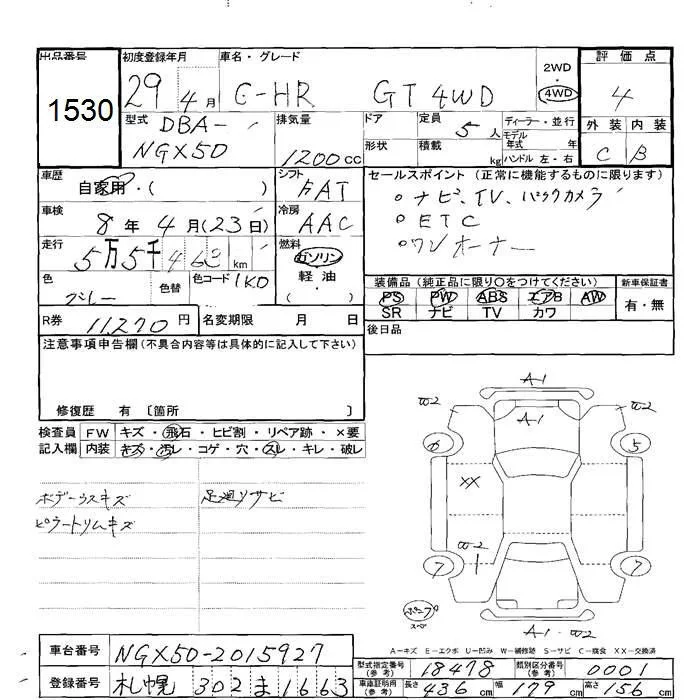 出品番号 初度登録年月 車名・グレード 2WD 評価点
1530 29 4月 C-HR GT 4WD 4WD 4
型式 DBA- 排気量 ドア 定員 5人 ディーラー・並行 外装 内装
NGX50 1200cc 形状 積載 kg モデル年式 年 ハンドル 左・右 C B
車歴 自家用・( ) シフト FAT セールスポイント (正常に機能するものに限ります)
車検 8年 4月(23日) 冷房 AAC ○ナビ、TV、バックカメラ
○ETC
走行 5万5千463km 燃料 ガソリン・軽油・( ) ○ワンオーナー
色 グレー 色替 色コード 1K0 装備品 (純正品に限り○をつけてください) 新車保証書
PS PW ABS エアB AW 有・無
SR ナビ TV カワ
R券 11,270円 名変期限 月 日 後日品
注意事項申告欄(不具合内容等は具体的に記入して下さい)
修復歴 有 〔箇所 〕
検査員 FW キズ・飛石・ヒビ割・リペア跡・×要
記入欄 内装 キズ・汚レ・コゲ・穴・スレ・キレ・破レ
ボデーウスキズ 足廻りサビ
ピラートリムキズ
A-1
W-2 A-1 W-2
6 5
XX
W-2
7 1 7
A-1 W-2
A-キズ E-エクボ U-凹み W-補修跡 S-サビ C-腐食 XX-交換済
車台番号 NGX50-2015927 型式指定番号(参考) 18478 類別区分番号(参考) 0001
登録番号 札幌 302 ま 1663 車庫証明用(参考) 長さ 436cm 幅 179cm 高さ 156cm